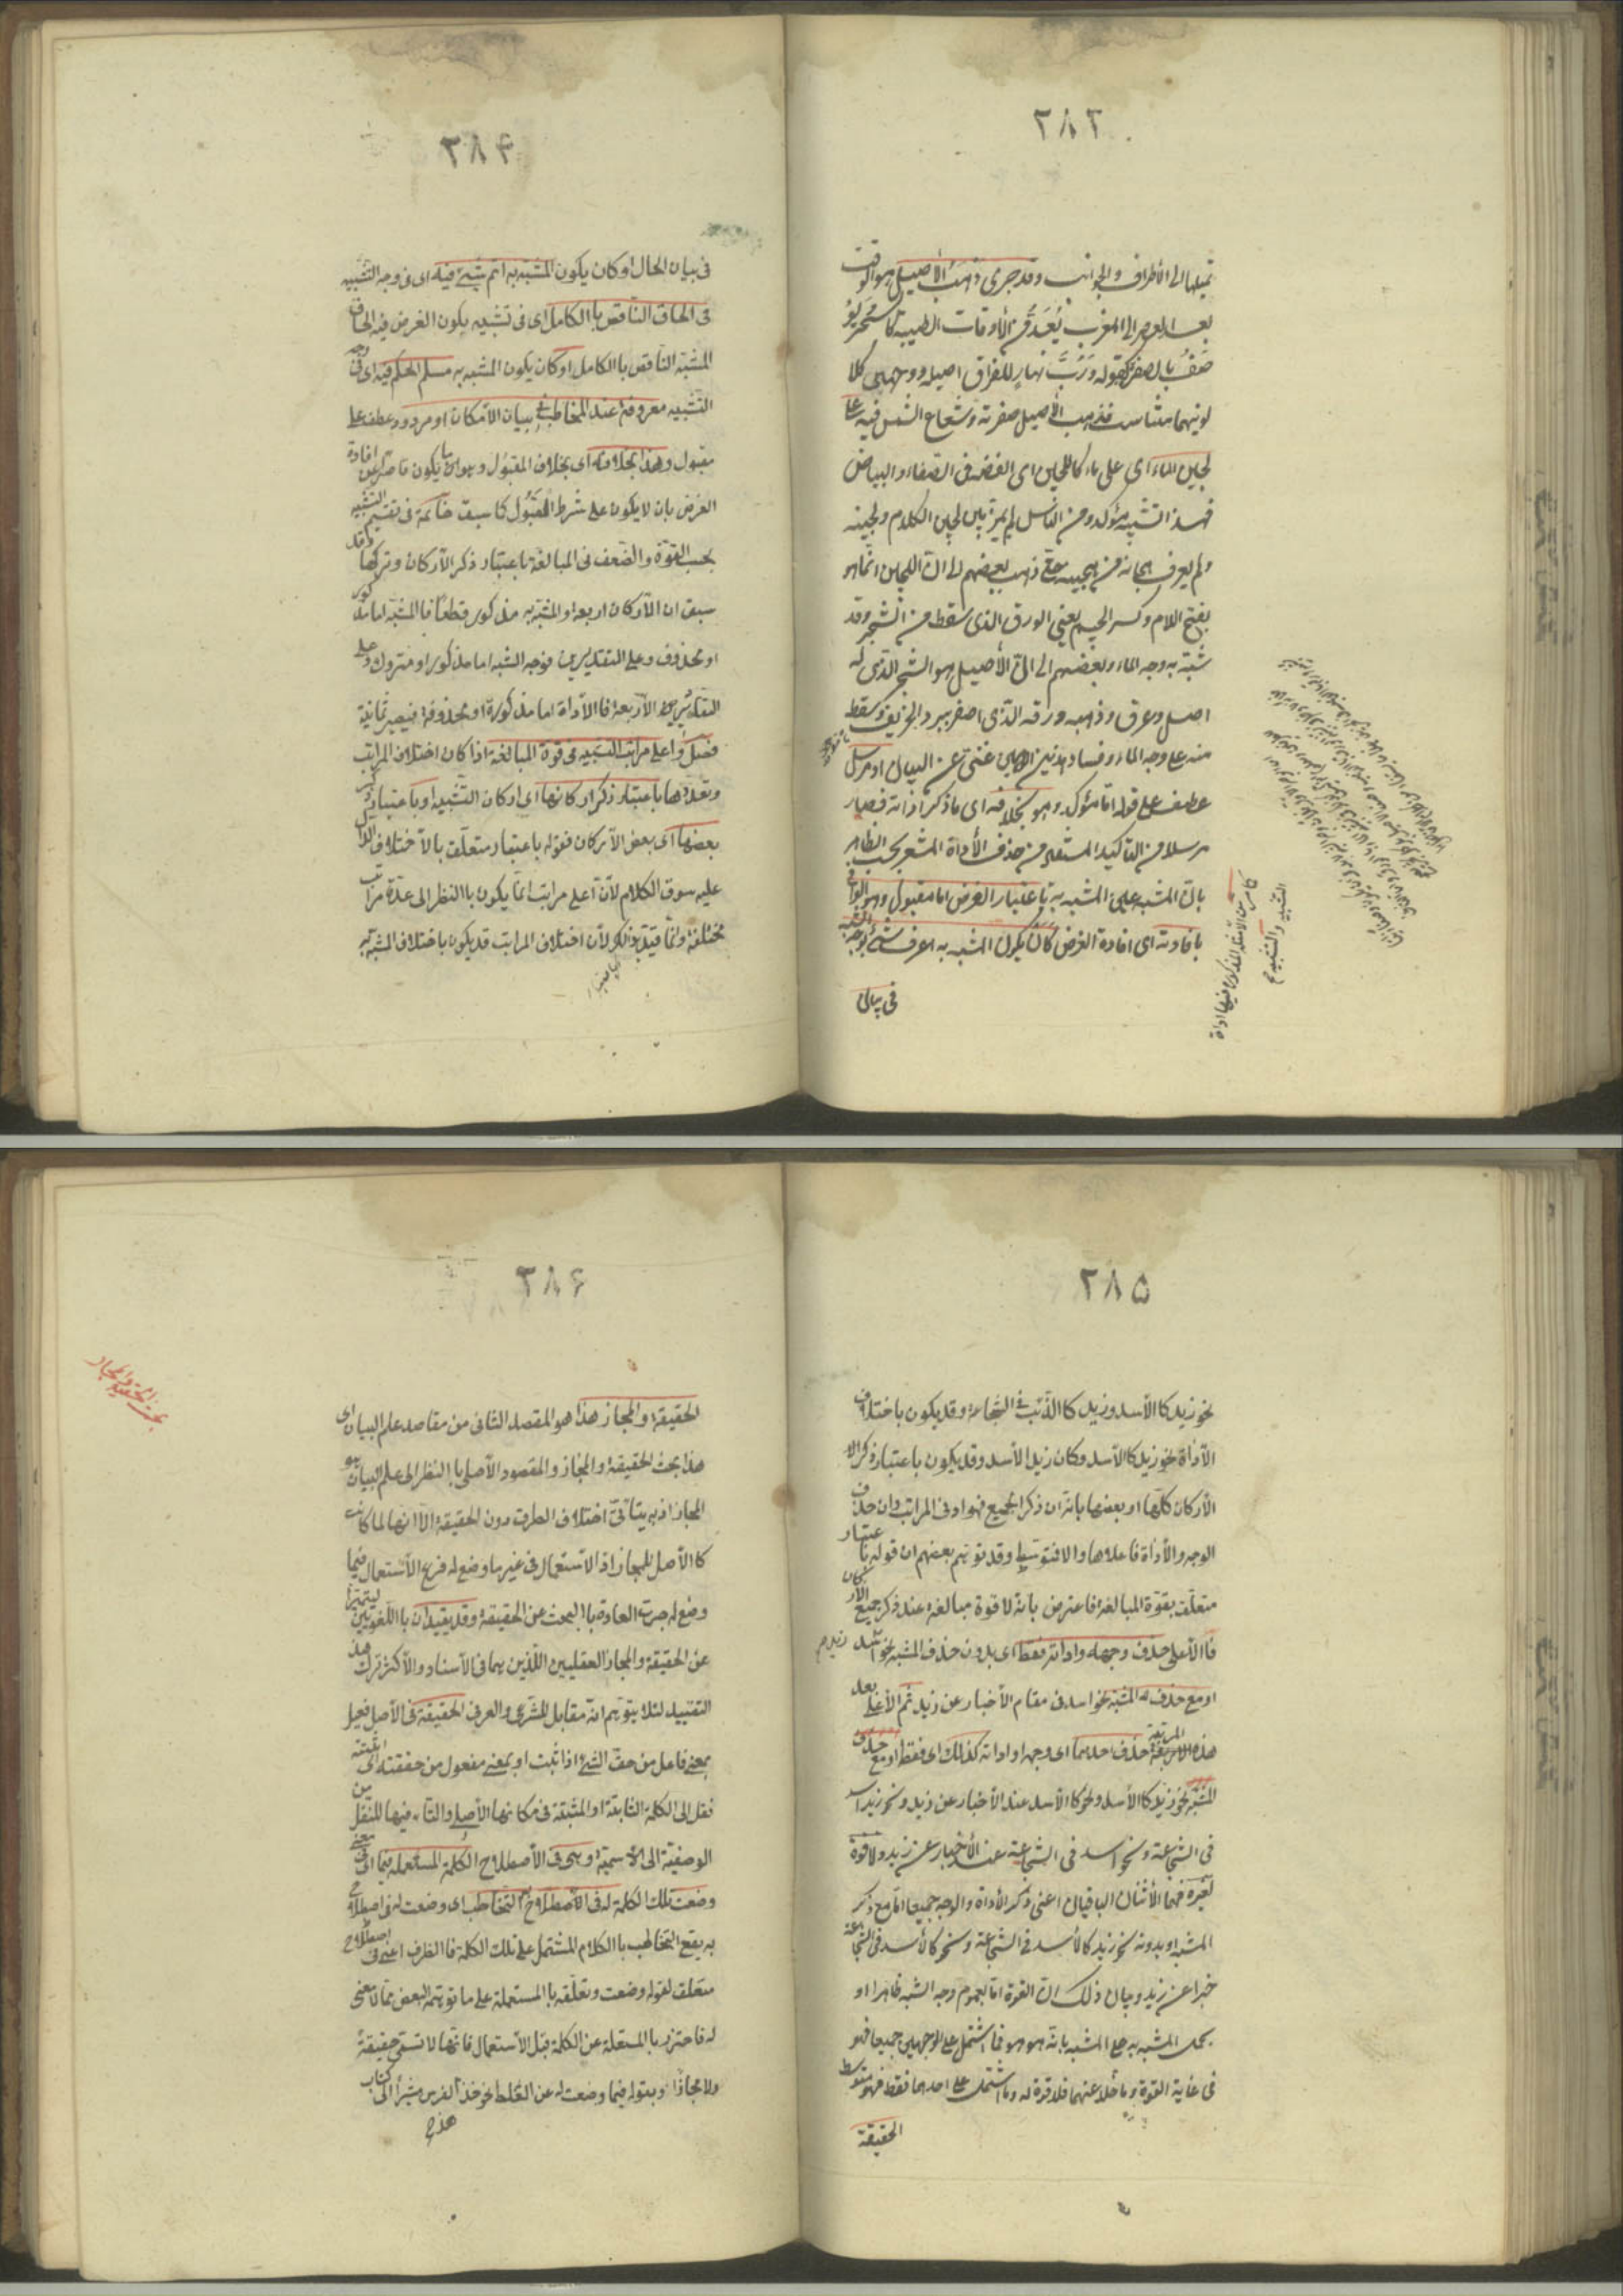 ٢٨٣
تميلها الى الأطراف والجوانب وقد جرى ذهب الأصيل هو الوقت
بعد العصر الى المغرب يعد من الأوقات الطيبة كالسحر ويو
صف بالصفرة كقوله ورب نهار للفراق اصيله ووجهى كلا
لونيهما متناسب فذهب الأصيل صفرته وشعاع الشمس فيه على
لجين الماء اى على ماء كاللجين اى الفضة فى الصفاء والبياض
فهذا التشبيه مؤكد ومن الناس لم يميز بين لجين الكلام ولجينه
ولم يعرف هجانه من هجينه حتى ذهب بعضهم الى ان اللجين انما هو
بفتح اللام وكسر الجيم يعنى الورق الذى سقط من الشجر وقد
شبه به وجه الماء وبعضهم الى ان الأصيل هو الشجر الذى له
اصل وعرق وذهبه ورقه الذى اصفر ببرد الخريف وسقط
منه على وجه الماء وفساد هذين الوجهين غنى عن البيان او مرسل
عطف على قوله اما مؤكد وهو بخلافه اى ما ذكر اداته فصار
مرسلا من التأكيد المستفاد من حذف الأداة المشعر بحسب الظاهر
بان المشبه عين المشبه به باعتبار الغرض اما مقبول وهو الوافى
بافادته اى افادة الغرض كأن يكون المشبه به اعرف شئ بوجه التشبيه
فى بيان
كما مر من الأمثلة المذكورة فيها اداة
التشبيه والتشبيه
٢٨۴
فى بيان الحال او كان يكون المشبه به اتم شئ فيه اى فى وجه التشبيه
فى الحاق الناقص بالكامل اى فى تشبيه يكون الغرض فيه الحاق
المشبه الناقص باالكامل او كان يكون المشبه به مسلم الحكم فيه اى فى وجه
التشبيه معروفة عند المخاطب فى بيان الأمكان او مردود عطف على
مقبول وهذا بخلافه اى بخلاف المقبول وهو ما يكون قاصرا عن افادة
الغرض بان لا يكون على شرط المقبول كما سبق خاتمة فى تقسيم التشبيه
بحسب القوة والضعف فى المبالغة باعتبار ذكر الأركان وتركها وقد
سبق ان الأركان اربعة والمشبه به مذكور قطعًا فا المشبه اما مذكور
او محذوف وعلى التقديرين فوجه الشبه اما مذكور او متروك وعلى
التقادير الأربعة فا الأداة اما مذكورة او محذوفة فيصير ثمانية
فضل واعلى مراتب التشبيه فى قوة المبالغة اذا كان اختلاف المراتب
وتعددها باعتبار ذكر اركانها اى اركان التشبيه او باعتبار ذكر
بعضها اى بعض الأركان فقوله باعتبار متعلق بالأختلاف الدال
عليه سوق الكلام لأن اعلى مراتب انما يكون باالنظر الى عدة مراتب
مختلفة وانما قيد بذلك لأن اختلاف المراتب قد يكون باختلاف المشبه به
٢٨۵
نحو زيد كا الأسد وزيد كا الذئب فى الشجاعة وقد يكون باختلاف
الأداة نحو زيد كا الأسد وكان زيد الأسد وقد يكون باعتبار ذكر الا
الأركان كلها او بعضها بانه ان ذكر الجميع فهو ادنى المراتب وان حذف
الوجه والأداة فاعلاها والا فتوسط وقد توهم بعضهم ان قوله باعتبار
متعلق بقوة المبالغة فاعترض بانه لا قوة مبالغة عند ذكر جميع الأركان
فا الأعلى حذف وجهه واداته فقط اى بدون حذف المشبه نحو زيد اسد
او مع حذف المشبه نحو اسد فى مقام الأخبار عن زيد ثم الأعلى بعد
هذه المرتبة حذف احدهما اى وجهه او اداته كذلك اى فقط او مع حذف
المشبه نحو زيد كا الأسد ونحو كا الأسد عند الأخبار عن زيد ونحو زيد اسد
فى الشجاعة ونحو اسد فى الشجاعة عند الأخبار عن زيد ولا قوة
لغيره فهما الأثنان الباقيان اعنى ذكر الأداة والوجه جميعا اما مع ذكر
المشبه او بدونه نحو زيد كالأسد فى الشجاعة ونحو كالأسد فى الشجاعة
خبرا عن زيد وبيان ذلك ان القوة اما بعموم وجه الشبه ظاهرا او
بحمل المشبه به على المشبه بانه هو هو فما اشتمل على الوجهين جميعا فهو
فى غاية القوة وما خلا عنهما فلا قوة له وما اشتمل على احدهما فقط فهو متوسط
الحقيقة
٢٨۶
بحث الحقيقة والمجاز
الحقيقة والمجاز هذا هو المقصد الثانى من مقاصد علم البيان اى
هذا بحث الحقيقة والمجاز والمقصود الأصلى باالنظر الى علم البيان هو
المجاز اذ به يتأتى اختلاف الطرق دون الحقيقة الا انها لما كانت
كا الأصل للمجاز اذ الأستعمال فى غير ما وضع له فرع الأستعمال فيما
وضع له جرت العادة باالبحث عن الحقيقة وقد يقيدان باللغويين ليتميزا
عن الحقيقة والمجاز العقليين اللذين هما فى الأسناد والأكثر ترك هذا
التقييد لئلا يتوهم انه مقابل للشرعى والعرفى الحقيقة فى الأصل فعيل
بمعنى فاعل من حق الشئ اذا ثبت او بمعنى مفعول من حققته اى اثبته
نقل الى الكلمة الثابتة او المثبتة فى مكانها الأصلى والتاء فيها للنقل من
الوصفية الى الأسمية وهى فى الأصطلاح الكلمة المستعملة فيما اى فى معنى
وضعت تلك الكلمة له فى الأصطلاح التخاطب اى وضعت له فى اصطلاح
به يقع التخاطب باالكلام المشتمل على تلك الكلمة فا الظرف اعنى فى اصطلاح
متعلق لقوله وضعت وتعلقه باالمستعملة على ما توهمه البعض مما لا معنى
له فاحترز باالمستعملة عن الكلمة قبل الأستعمال فانها لا تسمى حقيقة
ولا مجازًا وبقوله فيما وضعت له عن الغلط نحو خذ الفرس مشيرًا الى كتاب